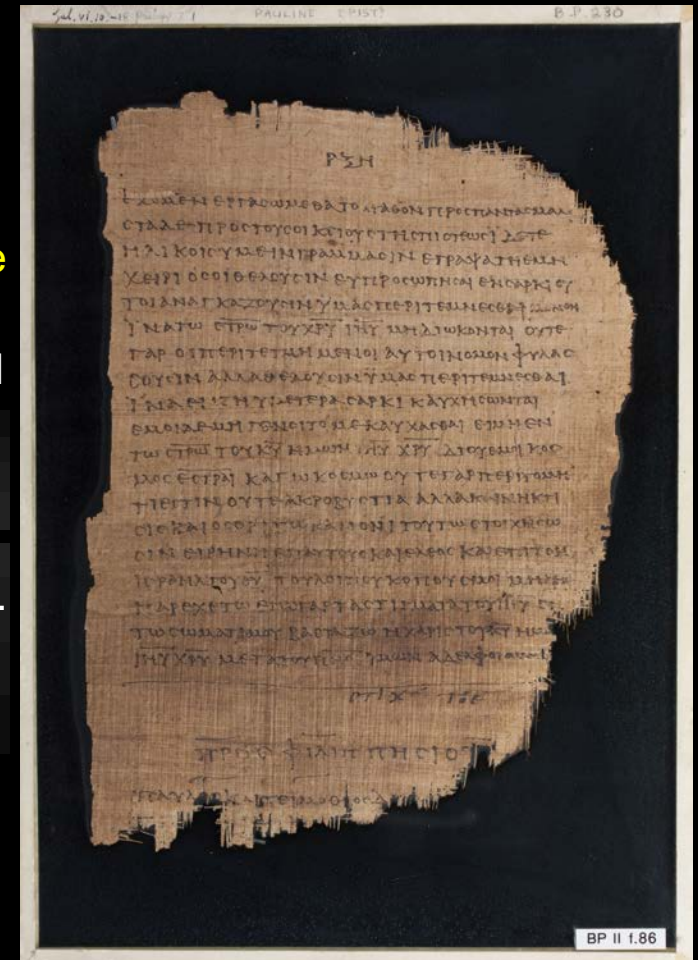 Gal. vi. 10 - 18 Philipp. i. 1 PAULINE EPIST? B.P. 230
ΡΞΗ
ΕΧΟΜΕΝ ΕΡΓΑΣΩΜΕΘΑ ΤΟ ΑΓΑΘΟΝ ΠΡΟΣ ΠΑΝΤΑΣ
ΣΤΑ ΔΕ ΠΡΟΣ ΤΟΥΣ ΟΙΚΕΙΟΥΣ ΤΗΣ ΠΙΣΤΕΩΣ ΙΔΕΤΕ
ΗΛΙΚΟΙΣ ΥΜΕΙΝ ΓΡΑΜΜΑΣΙΝ ΕΓΡΑΨΑ ΤΗ ΕΜΗ
ΧΕΙΡΙ ΟΣΟΙ ΘΕΛΟΥΣΙΝ ΕΥΠΡΟΣΩΠΗΣΑΙ ΕΝ ΣΑΡΚΙ ΟΥ
ΤΟΙ ΑΝΑΓΚΑΖΟΥΣΙΝ ΥΜΑΣ ΠΕΡΙΤΕΜΝΕΣΘΑΙ
ΙΝΑ ΤΩ ΣΤΡΩ ΤΟΥ ΧΡΥ ΙΗΥ ΜΗ ΔΙΩΚΟΝΤΑΙ ΟΥΤΕ
ΓΑΡ ΟΙ ΠΕΡΙΤΕΤΜΗΜΕΝΟΙ ΑΥΤΟΙ ΝΟΜΟΝ ΦΥΛΑΣ
ΣΟΥΣΙΝ ΑΛΛΑ ΘΕΛΟΥΣΙΝ ΥΜΑΣ ΠΕΡΙΤΕΜΝΕΣΘΑΙ
ΙΝΑ ΕΝ ΤΗ ΥΜΕΤΕΡΑ ΣΑΡΚΙ ΚΑΥΧΗΣΩΝΤΑΙ
ΕΜΟΙ ΔΕ ΜΗ ΓΕΝΟΙΤΟ ΜΕ ΚΑΥΧΑΣΘΑΙ ΕΙ ΜΗ ΕΝ
ΤΩ ΣΤΡΩ ΤΟΥ ΚΥ ΗΜΩΝ ΙΗΥ ΧΡΥ ΔΙ ΟΥ ΕΜΟΙ ΚΟΣ
ΜΟΣ ΕΣΤΡΑΙ ΚΑΓΩ ΚΟΣΜΩ ΟΥΤΕ ΓΑΡ ΠΕΡΙΤΟΜΗ
ΤΙ ΕΣΤΙΝ ΟΥΤΕ ΑΚΡΟΒΥΣΤΙΑ ΑΛΛΑ ΚΑΙΝΗ ΚΤΙ
ΣΙΣ ΚΑΙ ΟΣΟΙ ΤΩ ΚΑΝΟΝΙ ΤΟΥΤΩ ΣΤΟΙΧΗΣΩ
ΣΙΝ ΕΙΡΗΝΗ ΕΠ ΑΥΤΟΥΣ ΚΑΙ ΕΛΕΟΣ ΚΑΙ ΕΠΙ ΤΟΝ
ΙΣΡΑΗΛ ΤΟΥ ΘΥ ΤΟΥ ΛΟΙΠΟΥ ΚΟΠΟΥΣ ΜΟΙ
ΠΑΡΕΧΕΤΩ ΕΓΩ ΓΑΡ ΤΑ ΣΤΙΓΜΑΤΑ ΤΟΥ ΙΗΥ ΕΝ
ΤΩ ΣΩΜΑΤΙ ΜΟΥ ΒΑΣΤΑΖΩ Η ΧΑΡΙΣ ΤΟΥ ΚΥ
ΙΗΥ ΧΡΥ ΜΕΤΑ ΤΟΥ ΠΝΣ ΥΜΩΝ ΑΔΕΛΦΟΙ ΑΜΗΝ
ΣΤΙΧ ΤΟΕ
ΠΡΟΣ ΦΙΛΙΠΠΗΣΙΟΥΣ
ΠΑΥΛΟΣ ΚΑΙ ΤΕΙΜΟΘΕΟΣ
BP II f.86